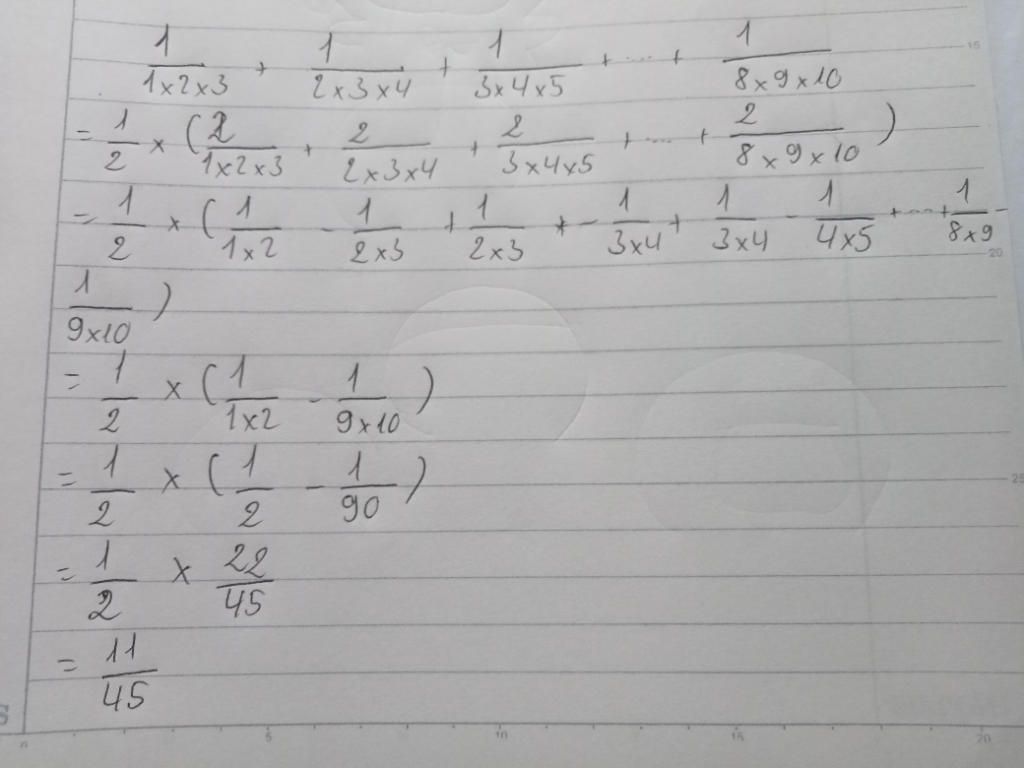 1/(1×2×3) + 1/(2×3×4) + 1/(3×4×5) + .... + 1/(8×9×10)
15
= 1/2 × (2/(1×2×3) + 2/(2×3×4) + 2/(3×4×5) + .... + 2/(8×9×10))
= 1/2 × (1/(1×2) - 1/(2×3) + 1/(2×3) - 1/(3×4) + 1/(3×4) - 1/(4×5) + .... + 1/(8×9) -
20
1/(9×10))
= 1/2 × (1/(1×2) - 1/(9×10))
= 1/2 × (1/2 - 1/90)
25
= 1/2 × 22/45
= 11/45
S
0 5 10 15 20